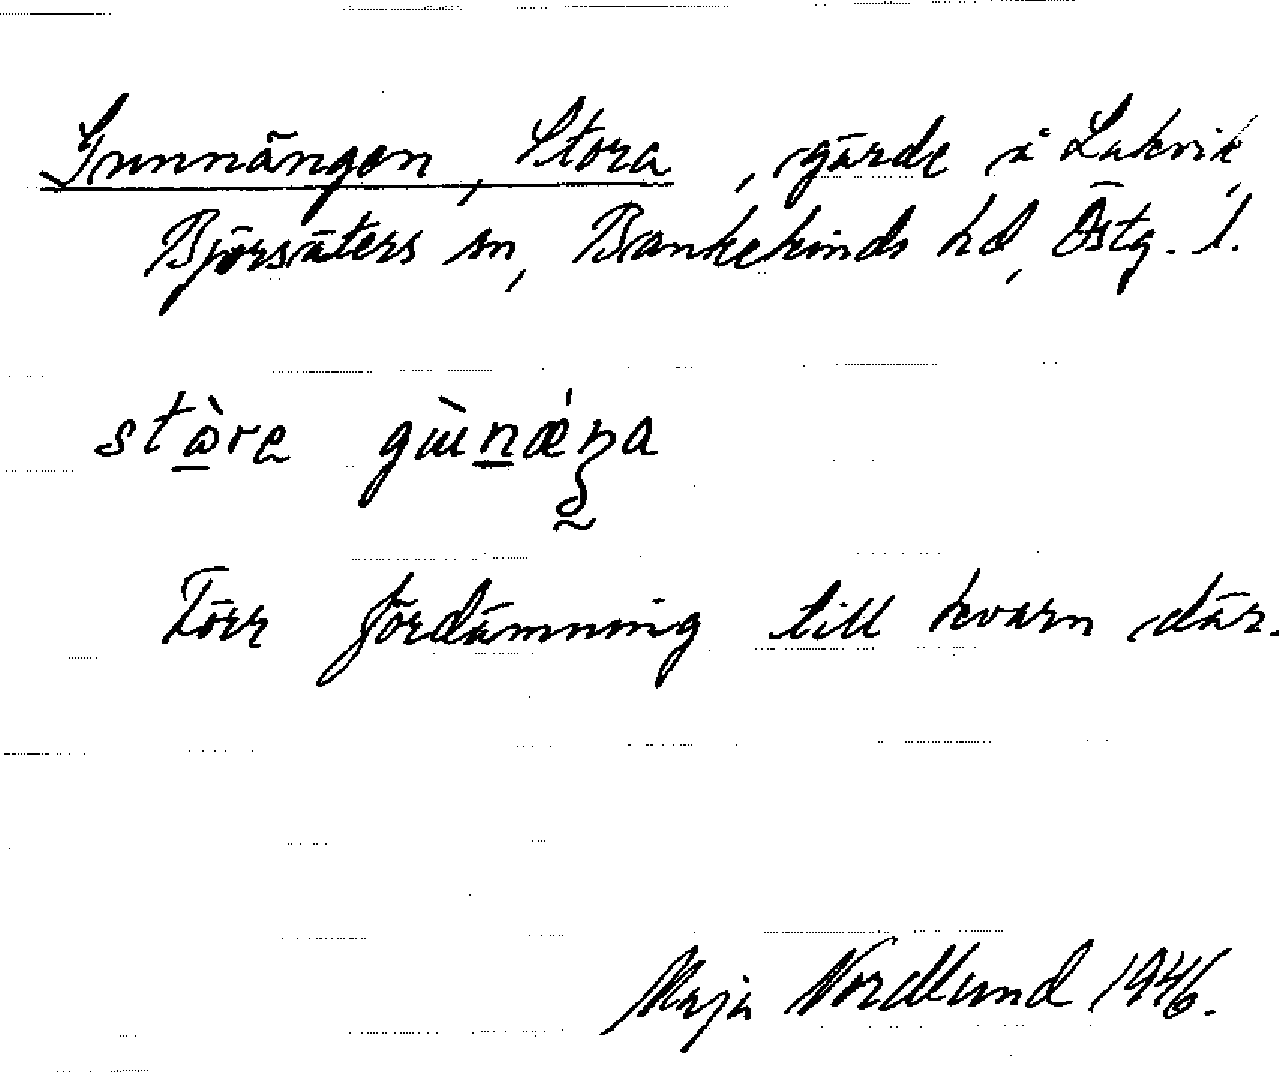 Gunnängen, Stora, gärde å Lakvik,
Björsäters sn, Bankekinds hd, Östg. l.
Förr fördämning till kvarn där.
Maja Nordlund 1946.